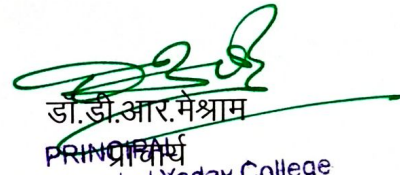 डॉ.डी.आर.मेश्राम
प्राचार्य
PRINCIPAL
Yadav College